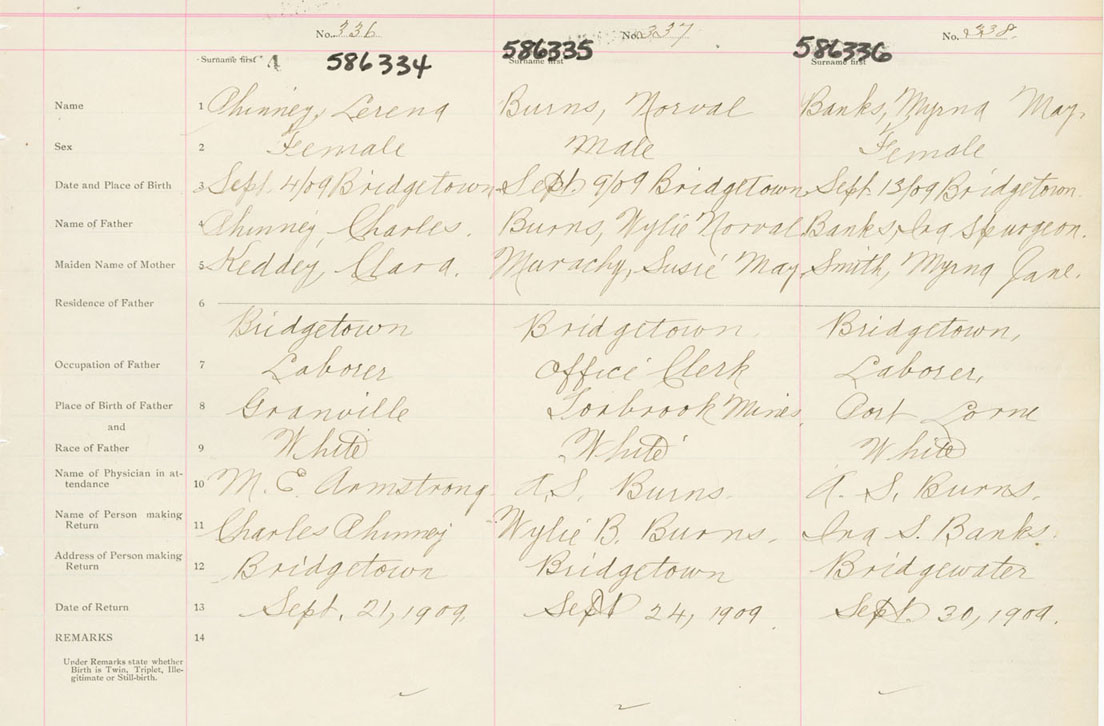 No. 336 No. 337 No. 338
586334 586335 586336
Surname first 4 Surname first Surname first
Name 1 Phinney, Lerena Burns, Norval Banks, Myrna May.
Sex 2 Female Male Female
Date and Place of Birth 3 Sept. 4/09 Bridgetown Sept. 9/09 Bridgetown Sept. 13/09 Bridgetown.
Name of Father 4 Phinney, Charles. Burns, Wylie Norval Banks, Ira Spurgeon.
Maiden Name of Mother 5 Keddey, Clara. Susie May Smith, Myrna Jane.
Residence of Father 6
Bridgetown Bridgetown. Bridgetown,
Occupation of Father 7 Laborer Office Clerk Laborer,
Place of Birth of Father 8 Granville Torbrook Mines, Port Lorne
and
Race of Father 9 White White White
Name of Physician in at-
tendance 10 M. E. Armstrong. A. S. Burns. A. S. Burns.
Name of Person making
Return 11 Charles Phinney Wylie B. Burns. Ira S. Banks.
Address of Person making
Return 12 Bridgetown Bridgetown Bridgewater
Date of Return 13 Sept. 21, 1909. Sept 24, 1909. Sept. 30, 1909.
REMARKS 14
Under Remarks state whether
Birth is Twin, Triplet, Ille-
gitimate or Still-birth.